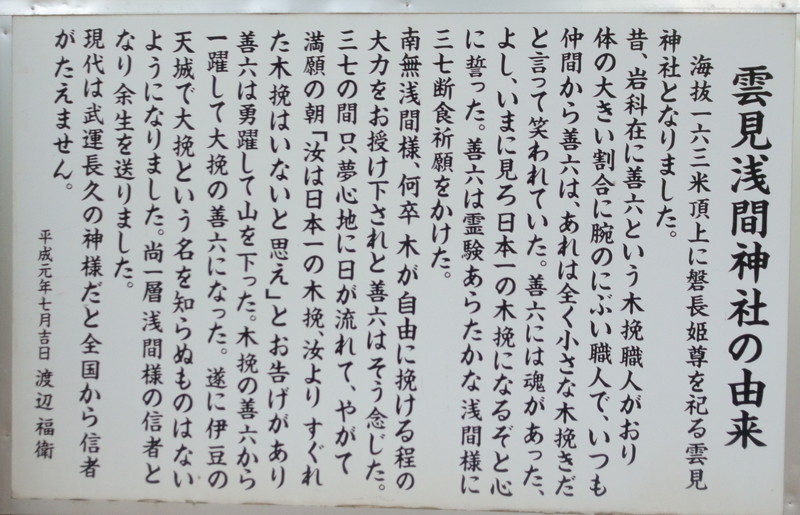 雲見浅間神社の由来
海抜一六三米頂上に磐長姫尊を祀る雲見
神社となりました。
昔、岩科在に善六という木挽職人がおり
体の大きい割合に腕のにぶい職人で、いつも
仲間から善六は、あれは全く小さな木挽きだ
と言って笑われていた。善六には魂があった、
よし、いまに見ろ日本一の木挽になるぞと心
に誓った。善六は霊験あらたかな浅間様に
三七断食祈願をかけた。
南無浅間様、何卒 木が自由に挽ける程の
大力をお授け下されと善六はそう念じた。
三七の間 只夢心地に日が流れて、やがて
満願の朝「汝は日本一の木挽、汝より すぐれ
た木挽はいないと思え」とお告げがあり
善六は勇躍して山を下った。木挽の善六から
一躍して大挽の善六になった。遂に伊豆の
天城で大挽という名を知らぬものはない
ようになりました。尚一層浅間様の信者と
なり余生を送りました。
現代は武運長久の神様だと全国から信者
がたえません。
平成元年七月吉日 渡辺福衛